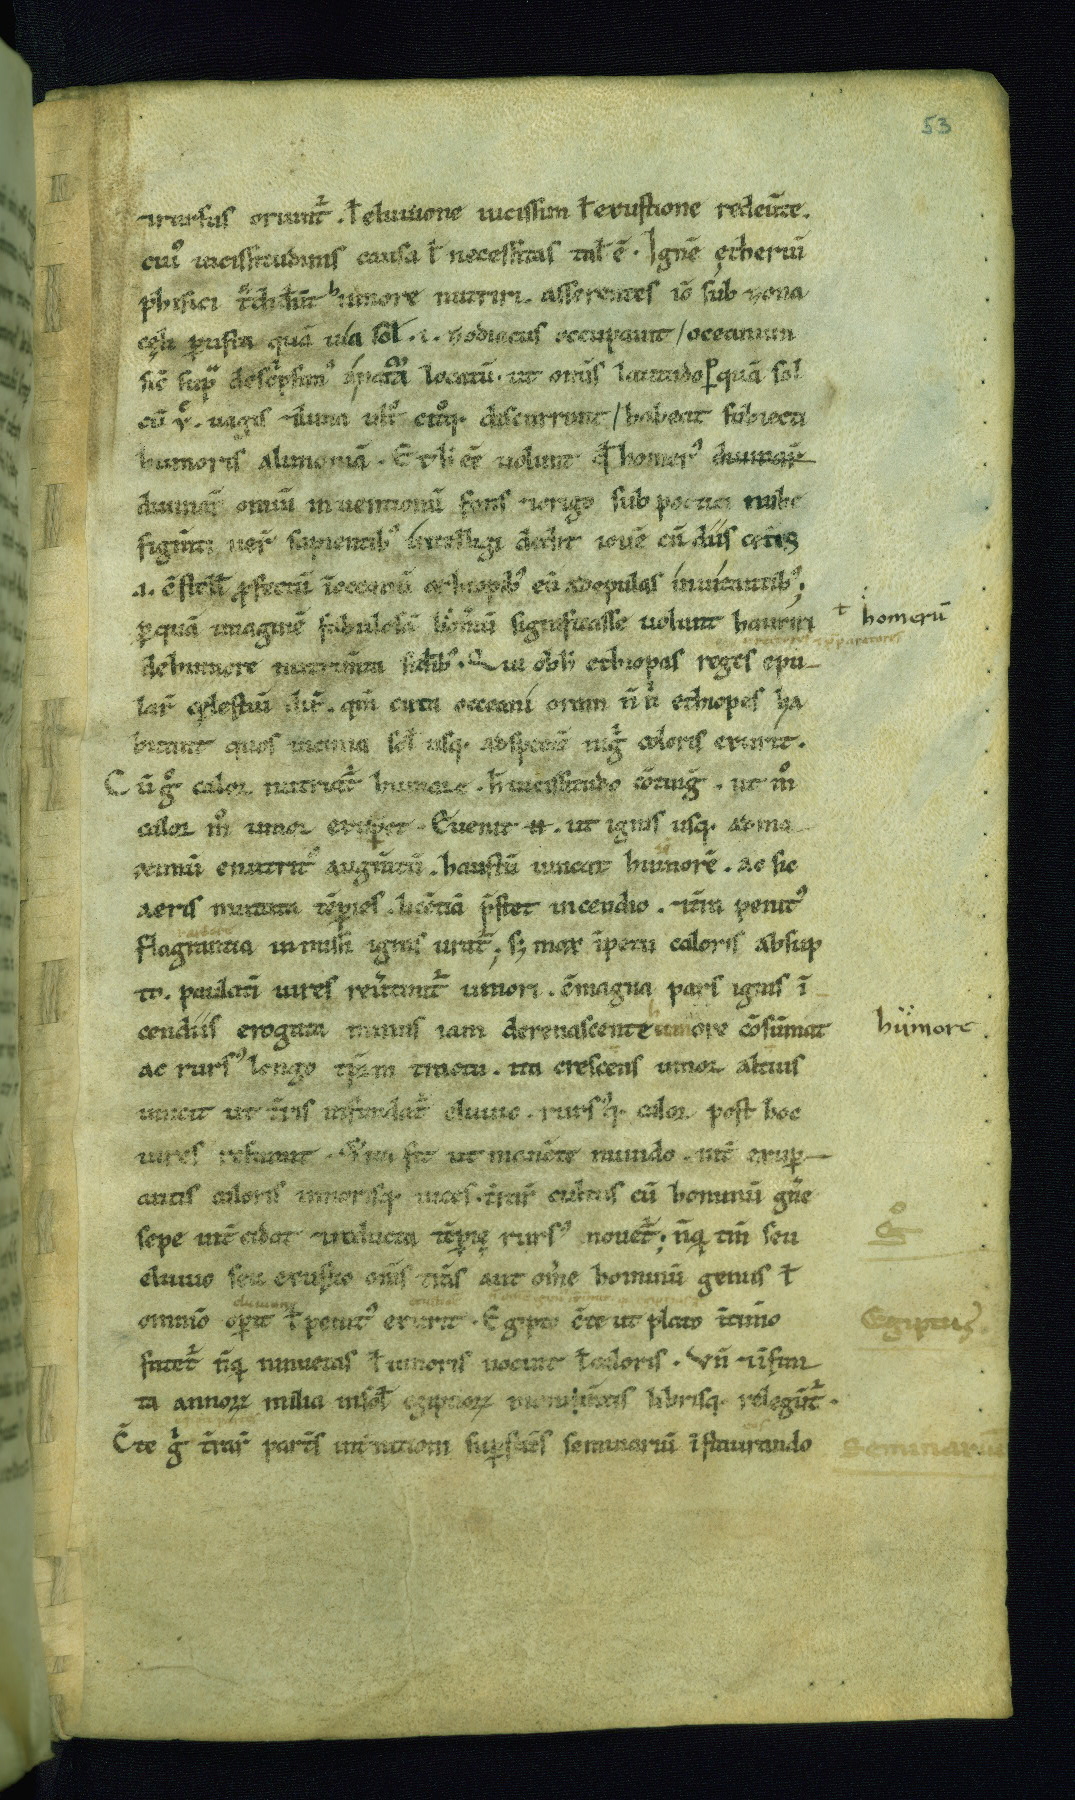 53
⁊rursus oriunt᷑ . ł eluuione uicissim ł exustione redeūte .
cui᷒ uicissitudinis causa ł necessitas tał ē . Ignē ętheriū
phisici t᷑didert̄ humore nutriri . asserentes iō sub zona
cęli p̱usta quā uia sol .i. zodiacus occupauit / oceanum
sic̄ sup᷑ desc᷑psim᷒ a natura locatū . ut om̄is latitudo quā sol
cū v̊ . uagis ⁊luna ult᷑ cit᷑q; discurrunt / habeat subiecti
humoris alimoniā . Et h̄ ēē uolunt q̄ homer᷒ diuinaꝝ
diuinaꝝ om̄iū inuentionū fons ⁊origo sub poetici nube
figm̄ti ueꝝ sapientib᷒ intelligi dedit iouē cū diis cet̄is
.i. cū stellis p̱fectū ī oceanū ethiopib᷒ eū ad epulas inuitantib᷒ ;
p̱ quā imaginē fabulosā homerū significasse uolunt hauriri
homerū
de humore nutrim̄ta siderib᷒ . Qui ob h̄ ethiopas reges epu
laꝝ cęlestiū dix̄ . qm̄ circa oceani oram n̄ n᷑ ethiopes ha
bitant quos uicinia sol̄ usq; ad speciē nig᷑ coloris exurit .
Cū g̊ calor nutriat᷑ humore . h̄ uicissitudo cōtingit . ut m̊
calor m̊ umor exuperet . Euenit .n. ut ignis usq; ad ma
ximū enutrit᷒ augm̄tū . haustū uincat humorē . ac sic
aeris mutata tēp̱ies . licētiā p̄stet incendio . ⁊t̄ra penit᷒
flagrantia inmissi ignis urat᷑ ; sꝫ mox īpetu caloris absup
to . paulatī uires reūtant᷑ umori . cū magna pars ignis ī
cendiis erogata minus iam de renascente humore cōsumat
hümore
ac rurs᷒ longo tēporum tractu . ita crescens umor altius
uincit ut t̄ris infundat᷑ eluuio . rurs᷒q; calor post hoc
uires resumit . Et ita fit ut manēte mundo . int̄ exup̱
antis caloris umorisq; uices . t̄raꝝ cultus cū hominū gn̄e
sepe int̄cidat ⁊reducta tēp̱ię rurs᷒ nouet᷑ ; n̄q̱ tm̄ seu
g̊
eluuio seu exustio om̄s t̄ras aut om̄e hominū genus ł
omnīo op̱it ł penit᷒ exurit . Egipto c̄te ut plato ī timeo
Egiptus .
fatet᷑ n̄q̱ nimietas ł umoris nocuit ł caloris . Vn̄ ⁊īfini
ta annoꝝ milia in sol̄ egiptioꝝ monum̄tis librisq; relegūt᷑ .
C̄te g᷑ t̄raꝝ partes internitioni sup̱stites seminariū īstaurando
Seminariū